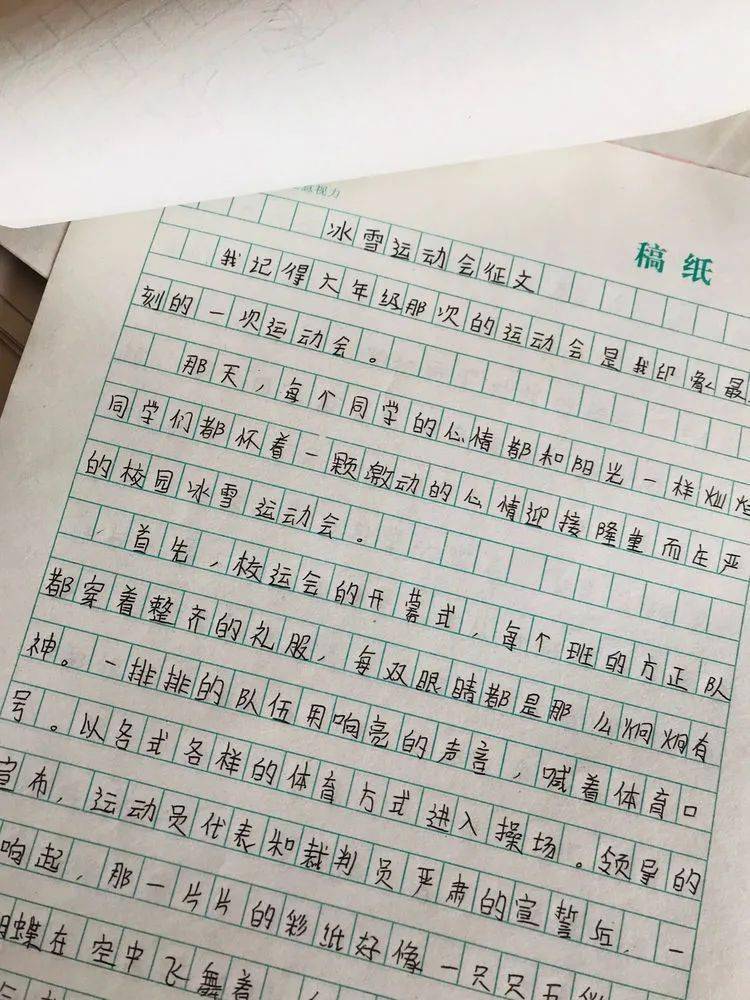 视力
稿纸
冰雪运动会征文
我记得六年级那次的运动会是我印象最
刻的一次运动会。
那天，每个同学的心情都和阳光一样灿
同学们都怀着一颗激动的心情迎接隆重而庄严
的校园冰雪运动会。
首先，校运会的开幕式，每个班的方正队
都穿着整齐的礼服，每双眼睛都是那么炯炯有
神。一排排的队伍用响亮的声音，喊着体育口
号。以各式各样的体育方式进入操场。领导的
宣布，运动员代表和裁判员严肃的宣誓后，一
响起，那一片片的彩纸好像一只只五
蝶在空中飞舞着